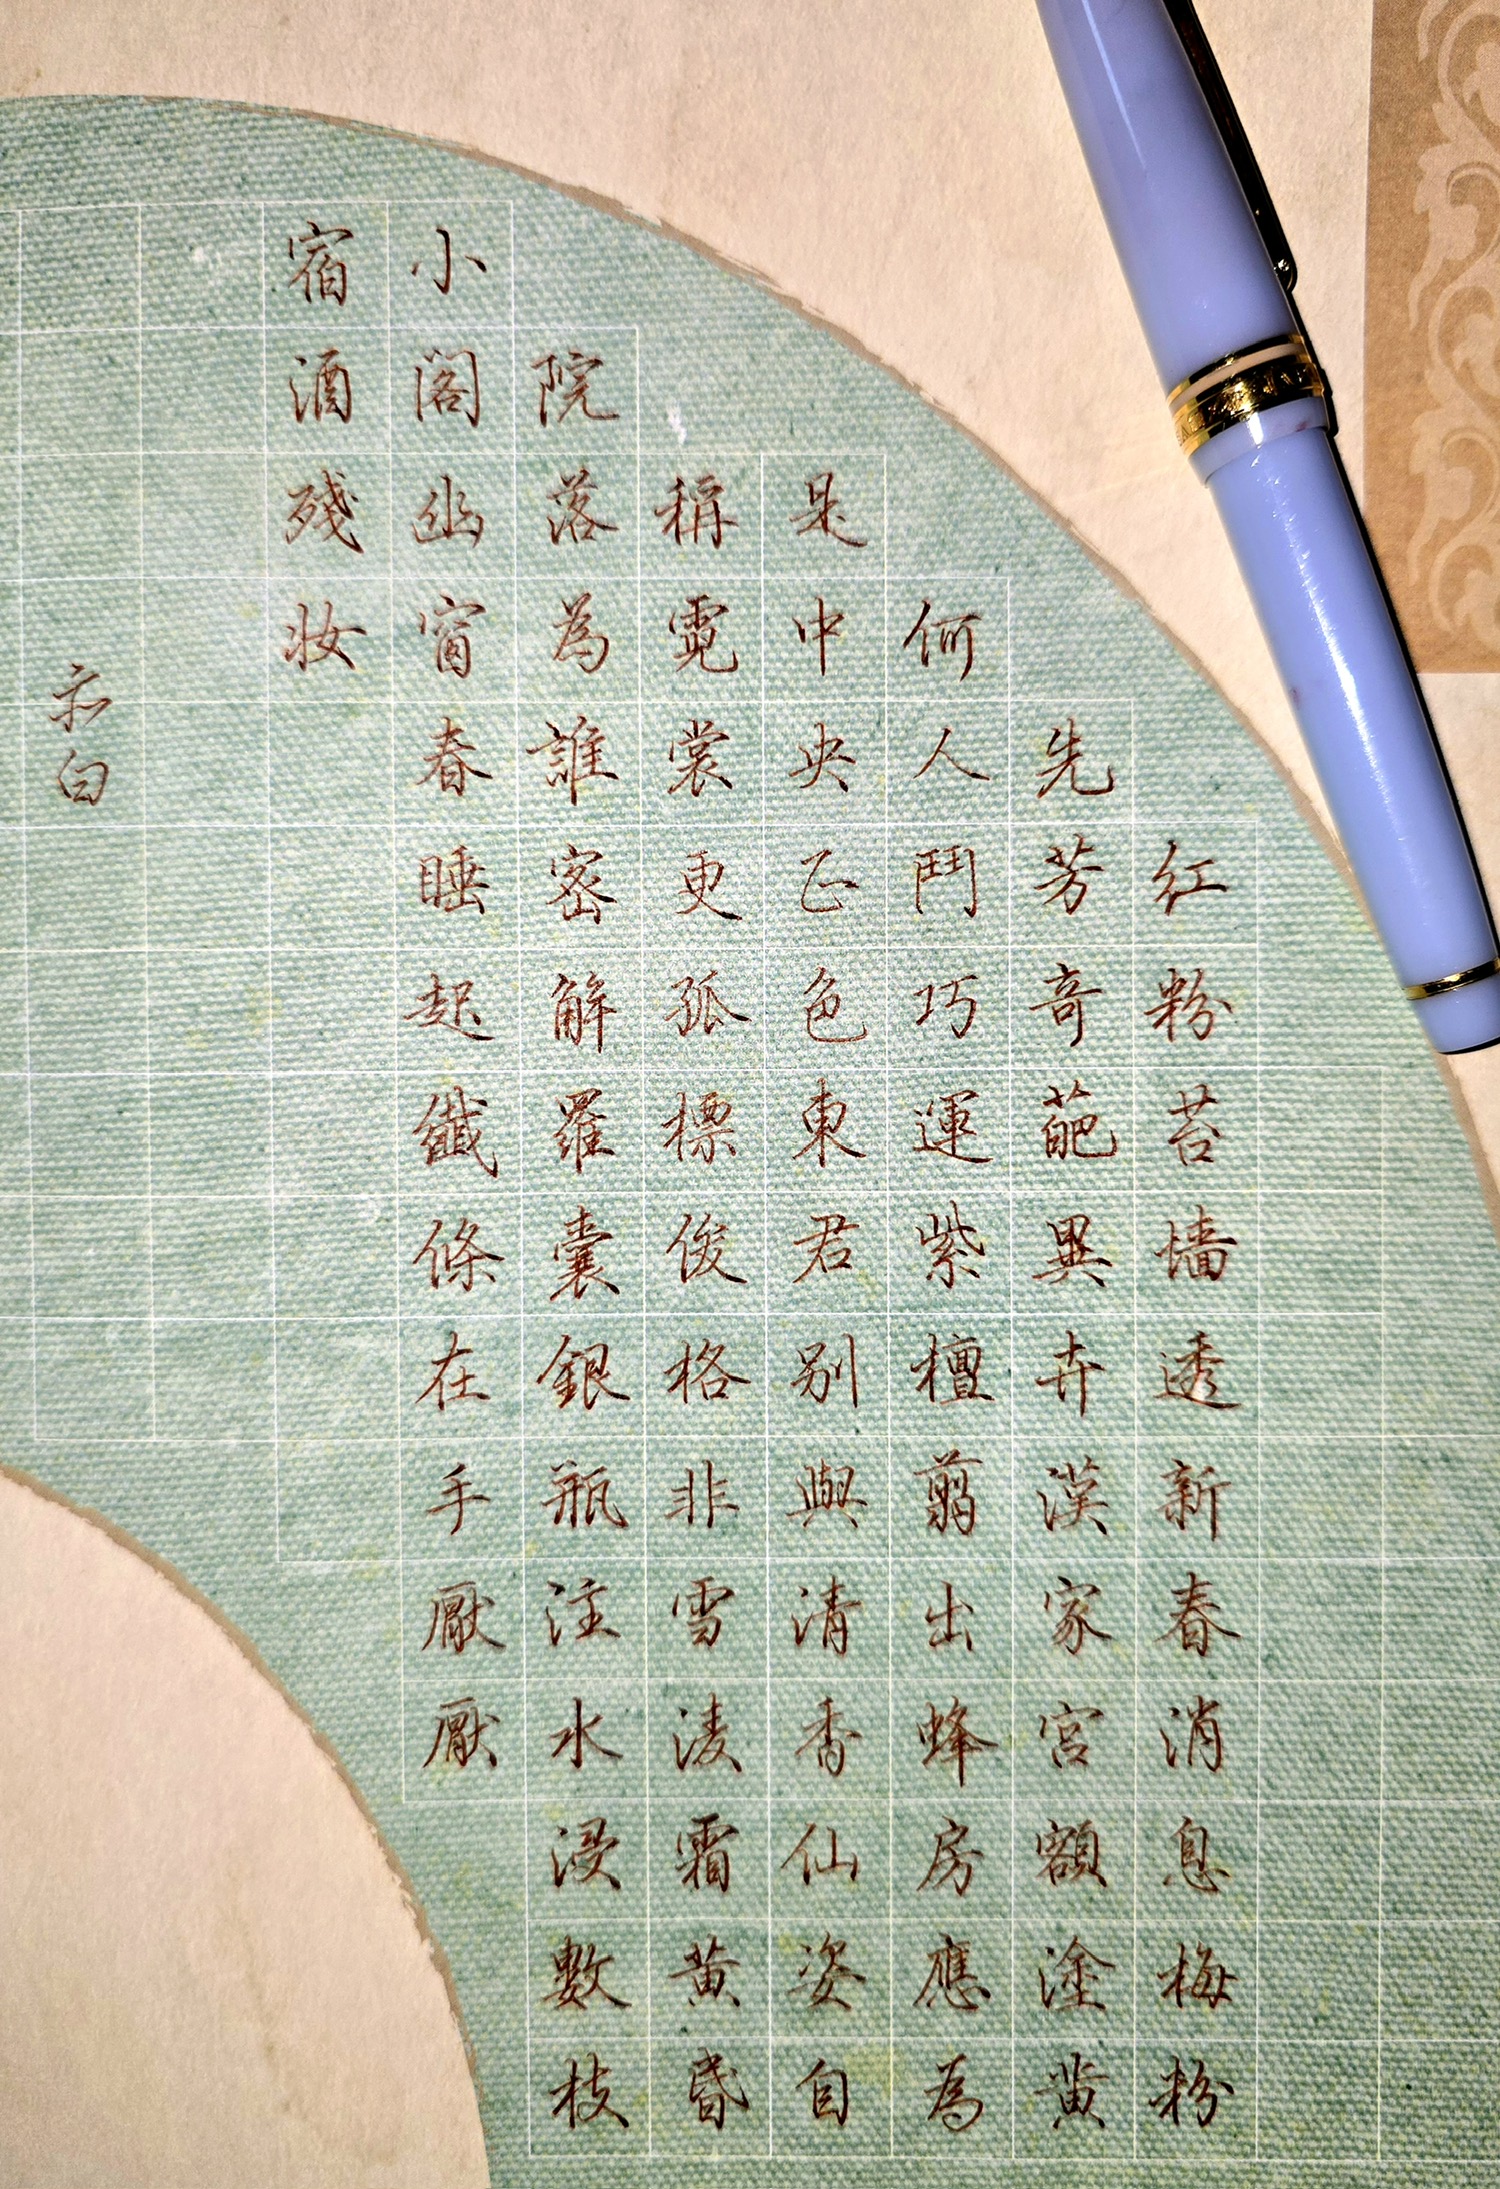 红粉苔墙透新春消息梅粉
先芳奇葩異卉漢家宮額塗黄
何人鬥巧運紫檀剪出蜂房應為
是中央正色東君别與清香仙姿自
稱霓裳更孤標俊格非雪凌霜黄昏
院落為誰密解羅囊銀瓶注水浸數枝
小閣幽窗春睡起纖條在手厭厭
宿酒殘妝
示白